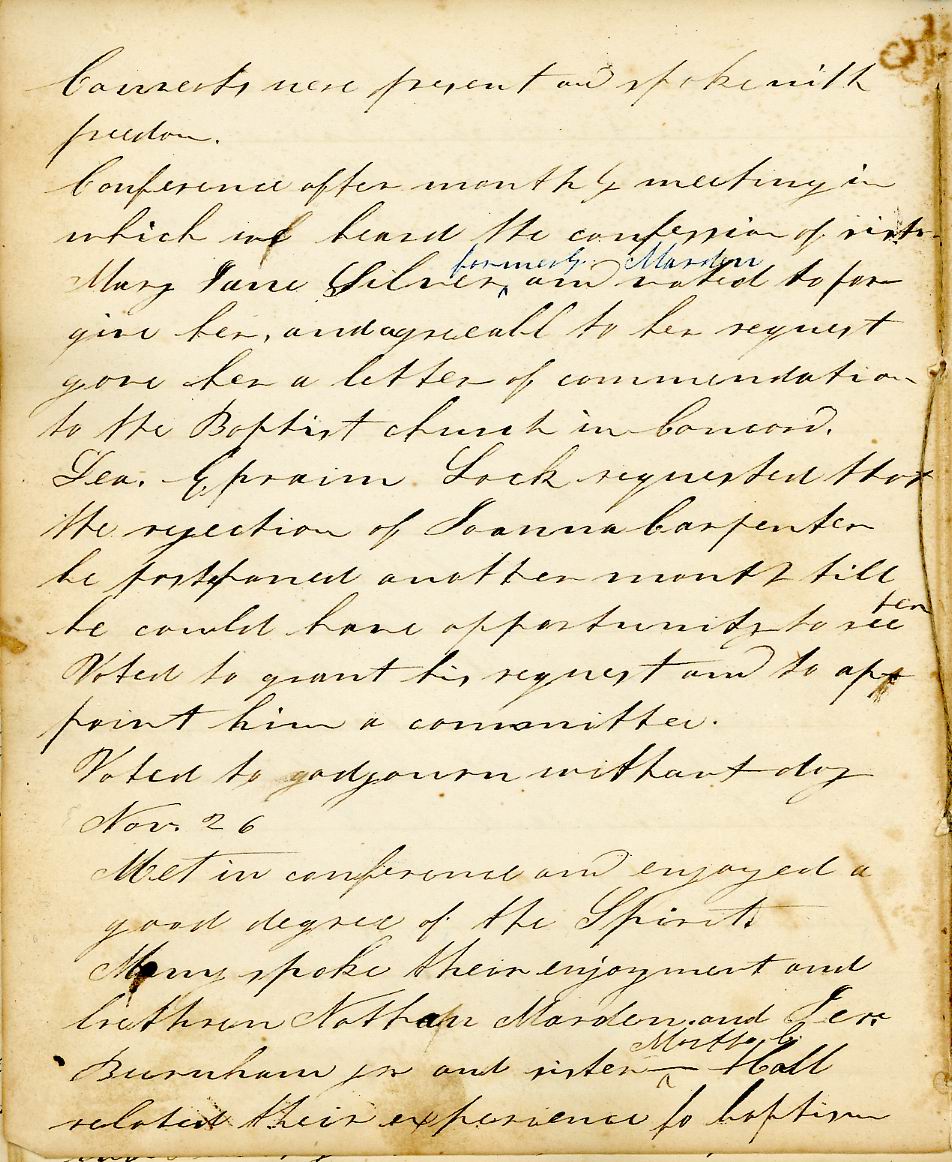 Converts were present and spoke with
freedom.
Conference after monthly meeting in
which we heard the confession of sister
Mary Jane Silver, formerly Marden and voted to for
give her, and agreeabl to her request
gave her a letter of commendation
to the Baptist church in Concord.
Dea. Ephraim Lock requested that
the rejection of Joanna Carpenter
be postponed another month till
he could have opportunity to see her
Voted to grant his request and to ap
point him a committee.
Voted to adjourn without day
Nov. 26
Met in conference and enjoyed a
good degree of the Spirit.
Many spoke their enjoyment and
brethren Nathan Marden and
Burnham jr and sister Martha Hall
related their experience fo baptism